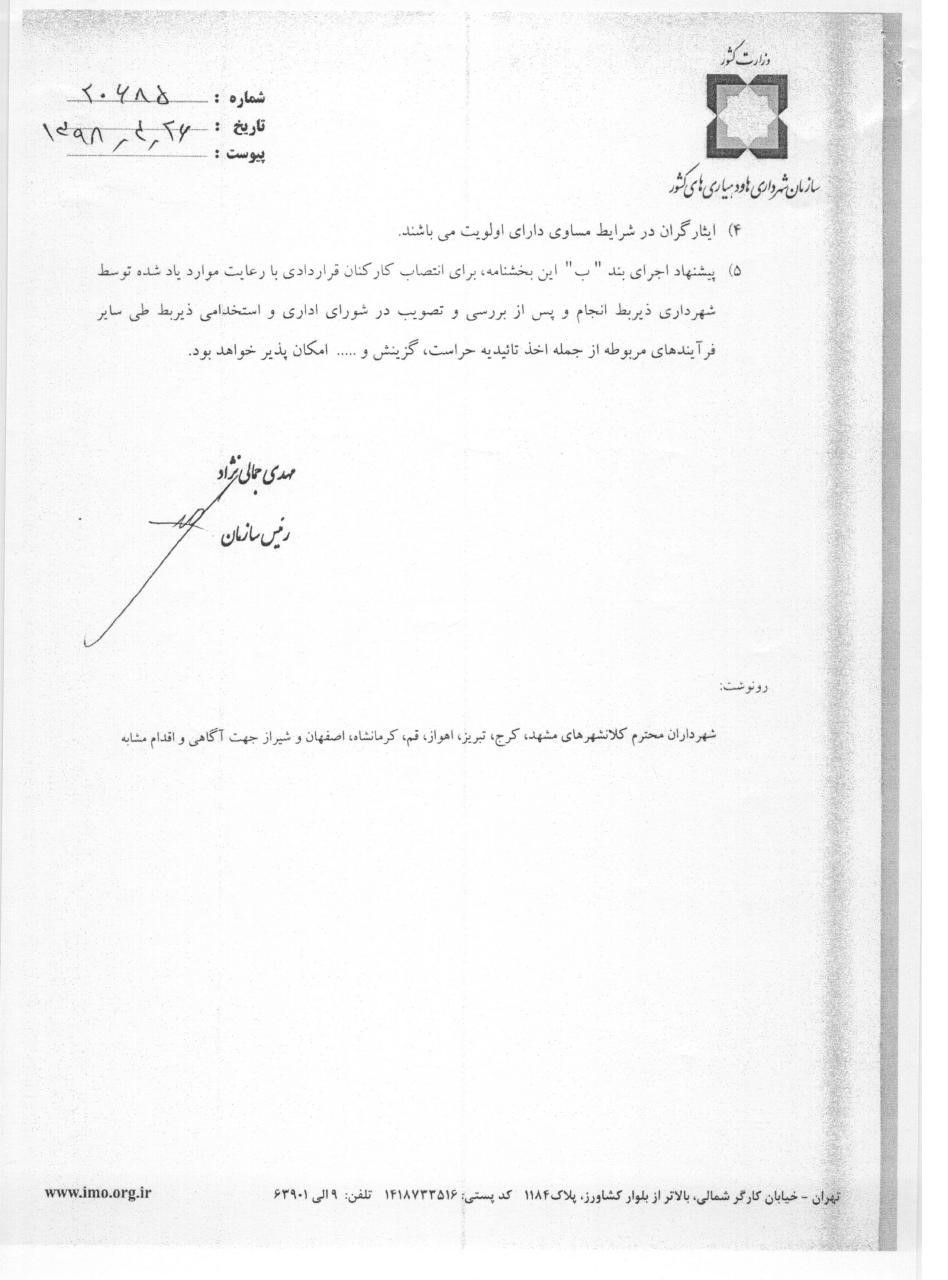 وزارت کشور
سازمان شهرداری ها و دهیاری های کشور
شماره : ۲۰۶۸۵
تاریخ : ۱۳۹۸/۴/۲۶
پیوست :
۴) ایثارگران در شرایط مساوی دارای اولویت می باشند.
۵) پیشنهاد اجرای بند " ب" این بخشنامه، برای انتصاب کارکنان قراردادی با رعایت موارد یاد شده توسط
شهرداری ذیربط انجام و پس از بررسی و تصویب در شورای اداری و استخدامی ذیربط طی سایر
فرآیندهای مربوطه از جمله اخذ تائیدیه حراست، گزینش و ..... امکان پذیر خواهد بود.
مهدی جمالی نژاد
رئیس سازمان
رونوشت:
شهرداران محترم کلانشهرهای مشهد، کرج، تبریز، اهواز، قم، کرمانشاه، اصفهان و شیراز جهت آگاهی و اقدام مشابه
تهران - خیابان کارگر شمالی، بالاتر از بلوار کشاورز، پلاک ۱۱۸۴ کد پستی: ۱۴۱۸۷۳۳۵۱۶ تلفن: ۹ الی ۶۳۹۰۱
www.imo.org.ir